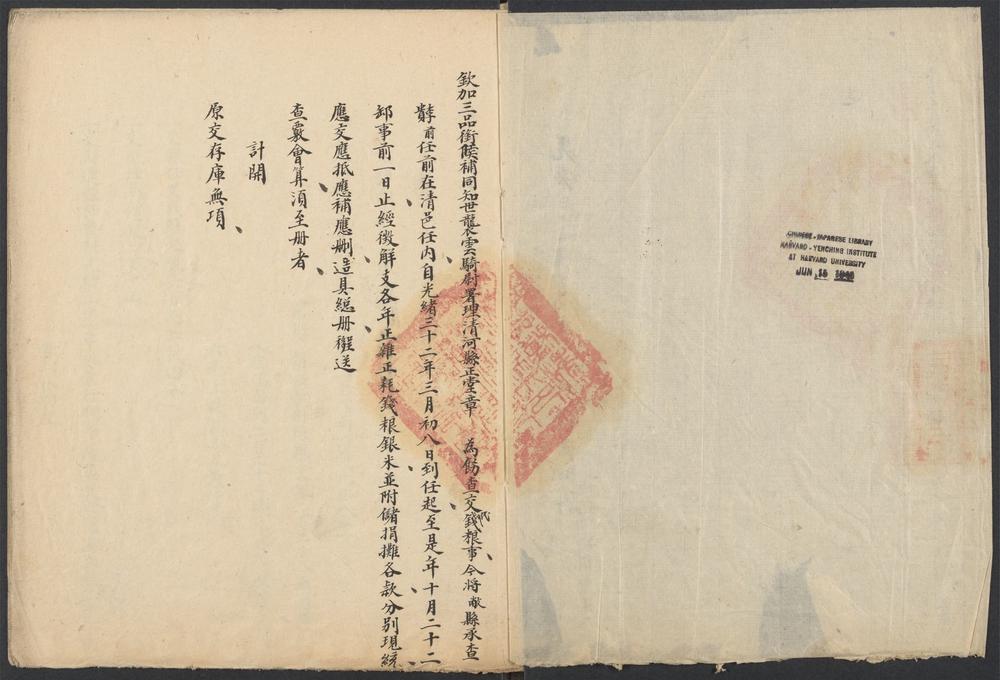 欽加三品銜候補同知世襲雲騎尉署理清河縣正堂章 為飭查交代錢粮事今將敝縣承查
前任前在清邑任內自光緒三十二年三月初八日到任起至是年十月二十二
卸事前一日止經徵解支各年正雜正耗錢粮銀米並附儲捐攤各款分別現
應交應抵應補應刪造具總冊移送
查覈會算須至冊者
計開
原交存庫無項
CHINESE-JAPANESE LIBRARY
HARVARD-YENCHING INSTITUTE
AT HARVARD UNIVERSITY
JUN 15